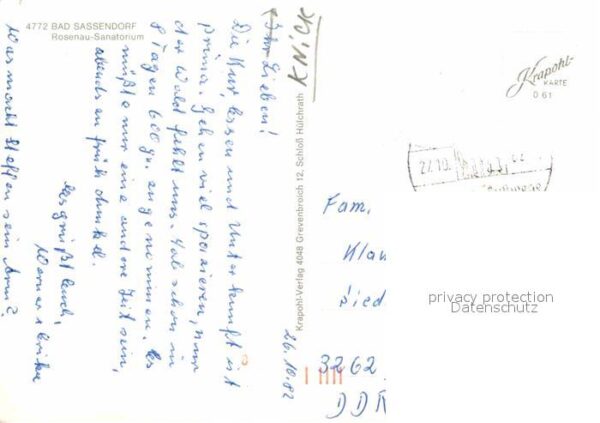 4772 BAD SASSENDORF
Rosenau-Sanatorium
Ihr Lieben!
Die Kur, Essen und Unterkunft ist
prima. Gehen viel spazieren, nur
der Wald fehlt uns. Hab schon in
8 Tagen 600 gr. zugenommen. Es
müßte nur eine andere Zeit sein,
abends zu früh dunkel.
Es grüßt Euch,
Werner + Erika
Was macht Steffen sein Arm?
KNICK
Krapohl-Verlag 4048 Grevenbroich 12, Schloß Hülchrath
26.10.82
Krapohl-
KARTE
D 61
27.10.
Fam.
Klau
Ried
3262
DDR
privacy protection
Datenschutz